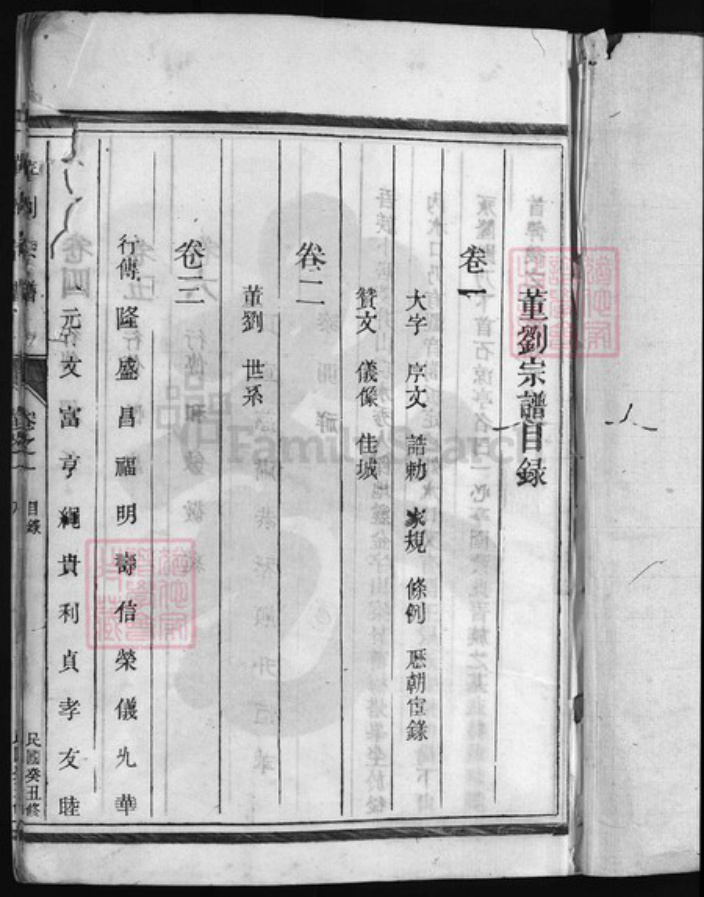 董劉宗譜目錄
卷一
大字 序文 誥勅 家規 條例 歷朝宦錄
贊文 儀像 佳城
卷二
董劉 世系
卷三
行傳 隆 盛 昌 福 明 壽 信 榮 儀 光 華
元 文 富 亨 繩 貴 利 貞 孝 友 睦
卷之一
目錄
民國癸丑修
FamilySearch